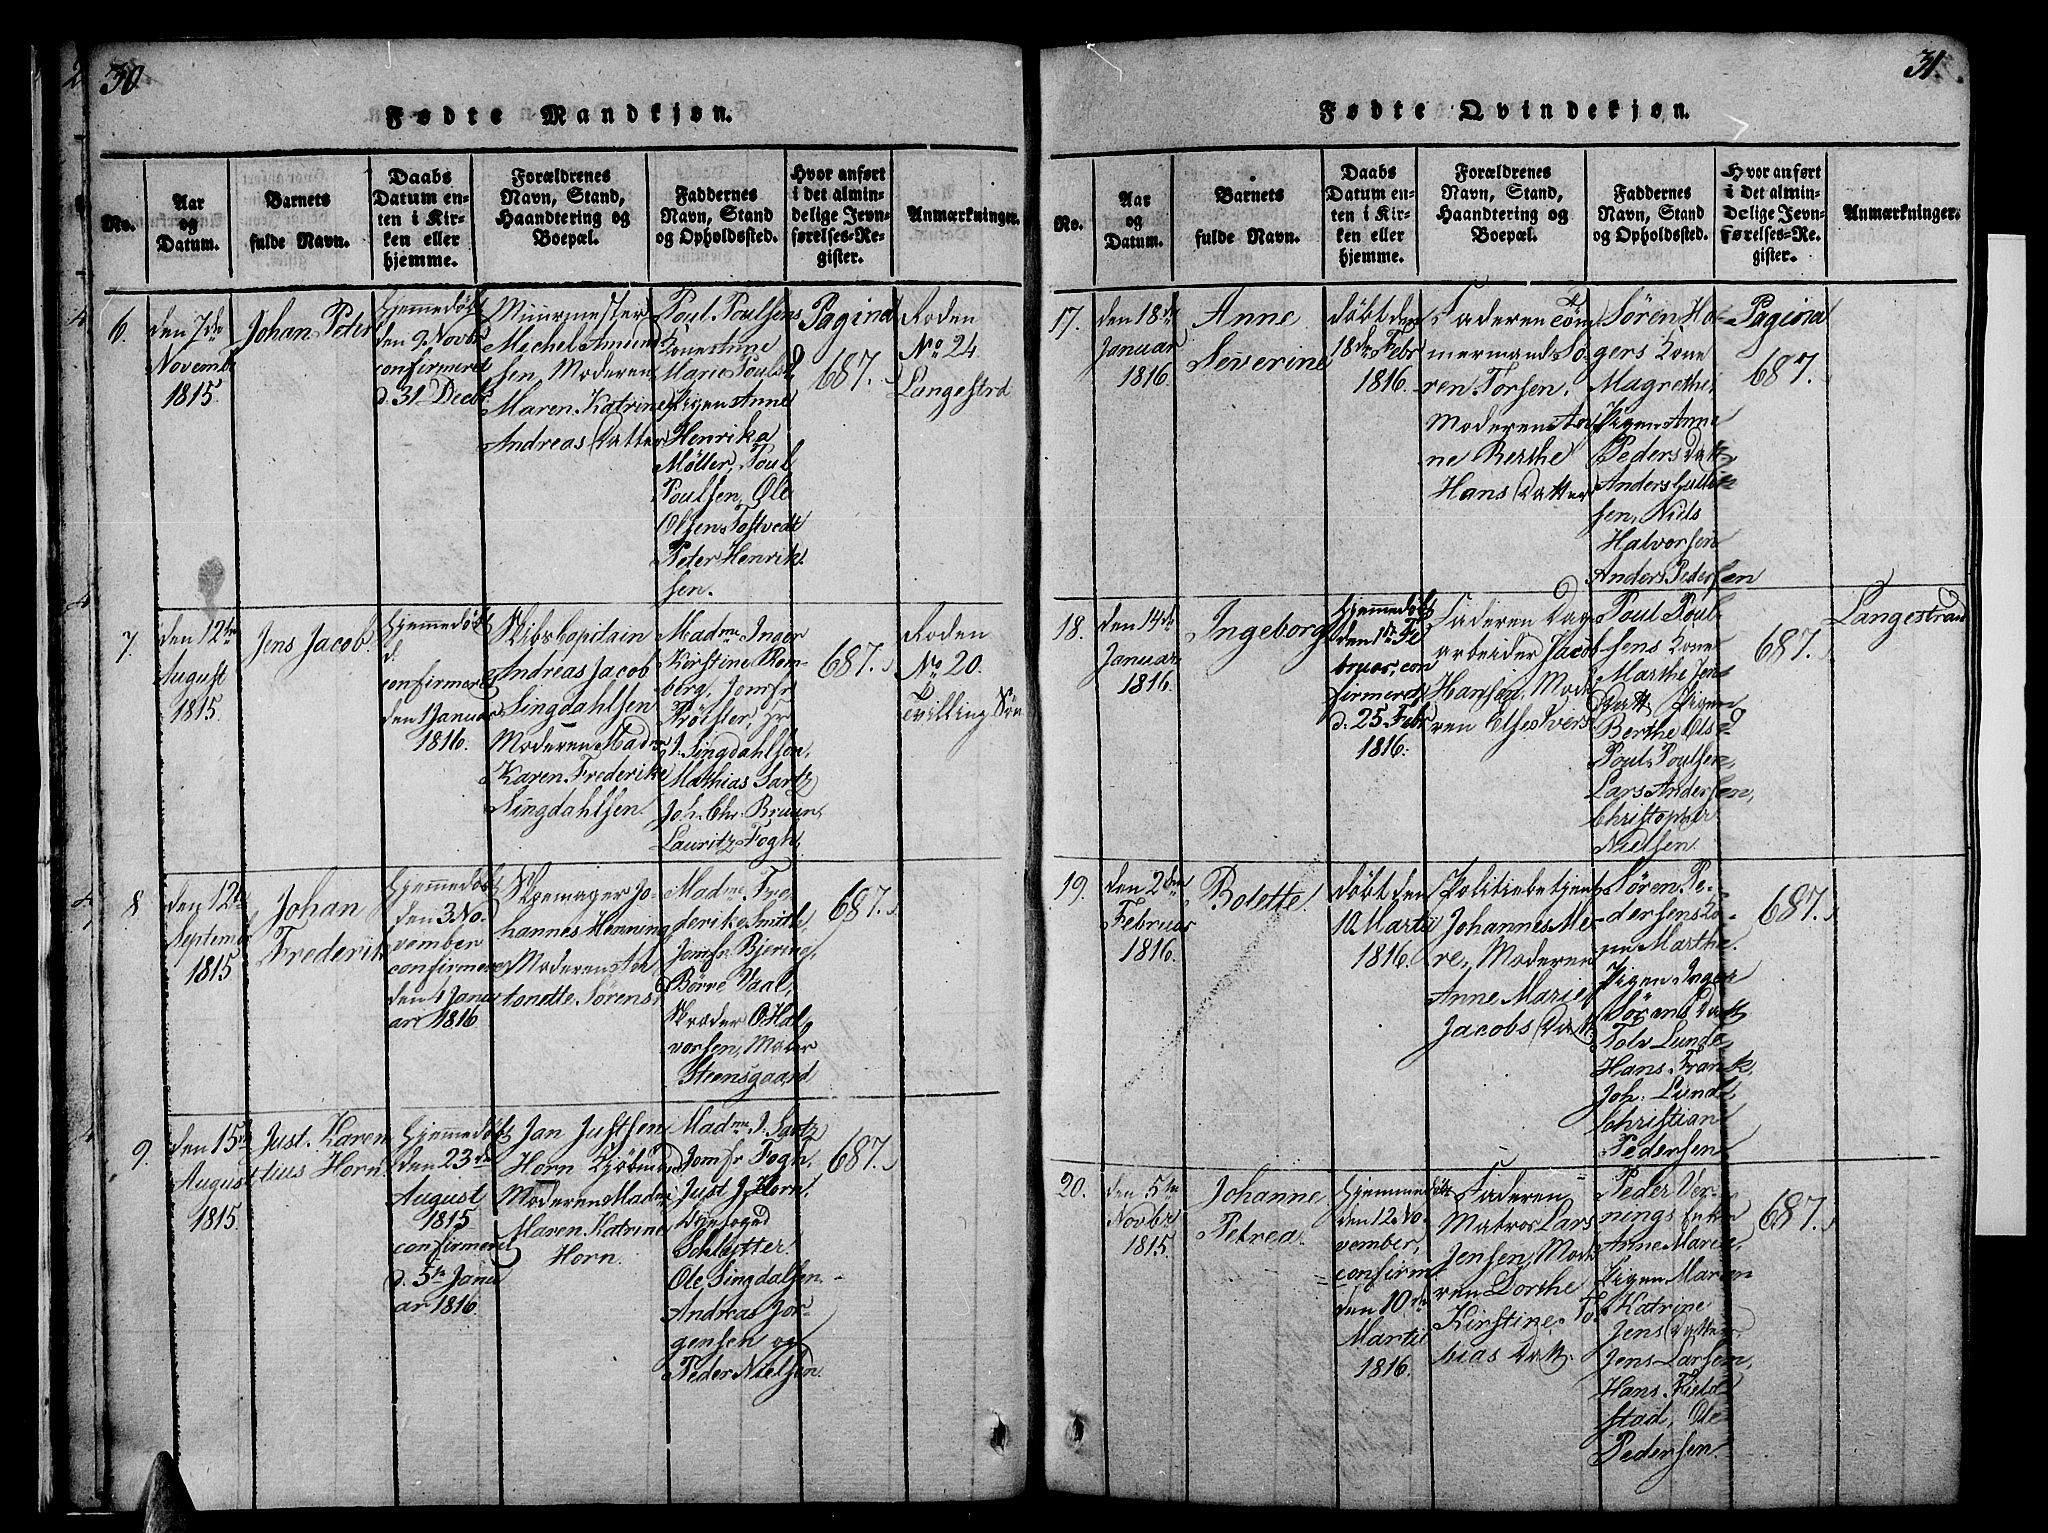 30
Fødte Mandkjøn.
No.
Aar
og
Datum.
Barnets
fulde Navn.
Daabs
Datum en-
ten i Kir-
ken eller
hjemme.
Forældrenes
Navn, Stand,
Haandtering og
Boepæl.
Faddernes
Navn, Stand
og Opholdssted.
Hvor anført
i det almin-
delige Jevn-
førelses-Re-
gister.
Anmærkninger.
6.
den 7de
Novemb
1815.
Johan Peter
Hjemmedøbt
den 9 Novbr
confirmeret
d. 31 Decb.
Muurmester
Michel Amund
sen, Moderen
Maren Katrine
Andreas Datter
Poul Poulsens
Kone
Marie Pouls
Pigen Anne
Henrika
Møller, Poul
Poulsen, Ole
Olsen Tostvedt
Peter Henrik
sen.
Pagina
687.
Roden
No 24.
Langestrd
7.
den 12te
August
1815.
Jens Jacob.
Hjemmedøbt
d.
confirmeret
den 1 Januar
1816.
Skibskapitain
Andreas Jacob
Singdahlsen
Moderen Madme
Karen Frederike
Singdahlsen.
Madme Inger
Kirstine Rom-
berg, Jomfr
Hr
J. Singdahlsen,
Mathias Sartz
Joh. Chr. Bruun,
Lauritz Fogh.
687.
Roden
No 20.
Tvilling Søn
8
den 12te
Septemb
1815
Johan
Frederik
Hjemmedøbt
den 3 No
vember
confirmeret
den 4 Janu
ar 1816
Skoemager Jo-
hannes Henning
Moderen An
tonette Sørens
Madme Fre
derike Smith,
Jomfr Bjering,
Børre Vaal,
Skræder O Hal
vorsen, Maler
Steensgaard
687.
9.
den 15de
August
1815.
Just Karen
tius Horn.
Hjemmedøbt
den 23de
August
1815
confirmeret
d. 5te Janu
ar 1816
Jan Justsen
Horn Kjøbmand
Moderen Madm
Maren Katrine
Horn.
Madme J. Sartz
Jomfr Fogh,
Just J Horn,
Byefoged
Schlytter
Ole Singdalsen
Andreas Jor-
gensen og
Peder Nielsen.
687.
31.
Fødte Qvindekjøn.
No.
Aar
og
Datum.
Barnets
fulde Navn.
Daabs
Datum en-
ten i Kir-
ken eller
hjemme.
Forældrenes
Navn, Stand,
Haandtering og
Boepæl.
Faddernes
Navn, Stand
og Opholdssted.
Hvor anført
i det almin-
delige Jevn-
førelses-Re-
gister.
Anmærkninger.
17.
den 18de
Januar
1816.
Anne
Severine
døbt den
18de Febr
1816.
Faderen Tøm
mermand Sø
ren Torsen,
Moderen An
ne Berthe
Hans Datter
Søren Ha-
gers Kone
Magrethe,
Pigen Anne
Peders Datt
Anders Gullik
sen, Niels
Halvorsen
Anders Pedersen
Pagina
687.
18.
den 14de
Januar
1816.
Ingeborg
Hjemmedøbt
den 1ste Fe
bruar, con
firmeret
d. 25 Febr
1816.
Faderen Dag
arbeider Jacob
Hansen, Mode
ren Else Ivers
Poul Poul
sens Kone
Marthe Jens
Datt, Pigen
Berthe Ols D
Poul Poulsen,
Lars Andersen,
Christopher
Nielsen.
687.
Langestrand
19.
den 2den
Februar
1816.
Bolette
døbt den
10 Martii
1816.
Politiebetjent
Johannes Me-
re, Moderen
Anne Marie
Jacobs Datt
Søren Pe-
dersens Ko-
ne Marthe,
Pigen Inger
Sørens Datt
Tolv Lunde,
Hans Frank,
Joh. Lund,
Christian
Pedersen
687.
20.
den 5te
Novbr
1815.
Johanne
Petrea.
Hjemmedøbt
den 12 No
vember,
confirm
den 10de
Martii
1816.
Faderen
Matros Lars
Jensen, Mode
ren Dorthe
Kirstine To
bias Datt.
Peder Ver-
nings Enke
Anne Marie,
Pigen Maren
Katrine
Jens Datter,
Jens Larsen,
Hans Field-
stad, Ole
Pedersen
687.